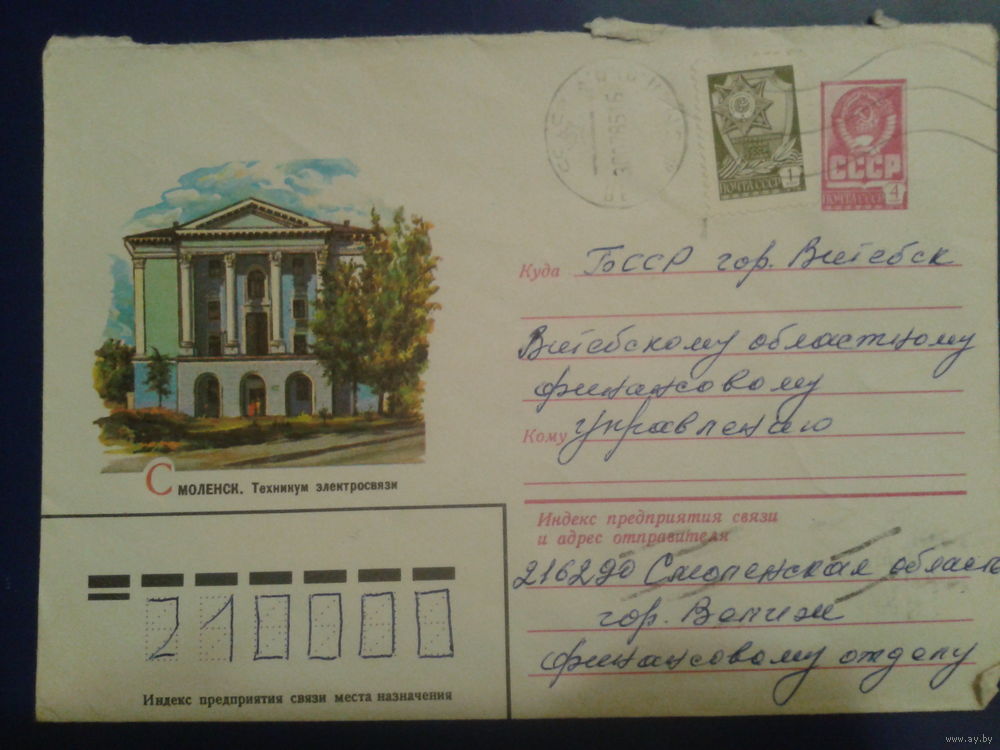 ПОЧТА СССР 1
СССР
ПОЧТА СССР 4
Куда ГоССР гор. Витебск
Витебскому областному
финансовому
Кому управлению
Смоленск. Техникум электросвязи
Индекс предприятия связи
и адрес отправителя
216290 Смоленская область
гор. Велиж
финансовому отделу
210000
Индекс предприятия связи места назначения
www.ay.by